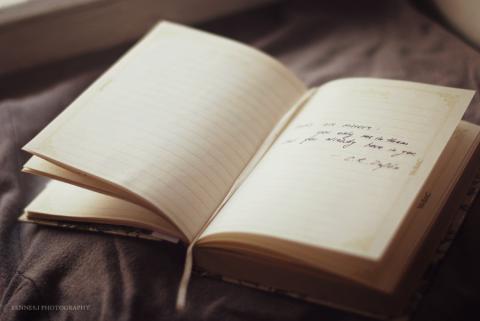 books are mirrors:
you only see in them
you already have in you
- C. R. Zafón
PHOTOGRAPHY